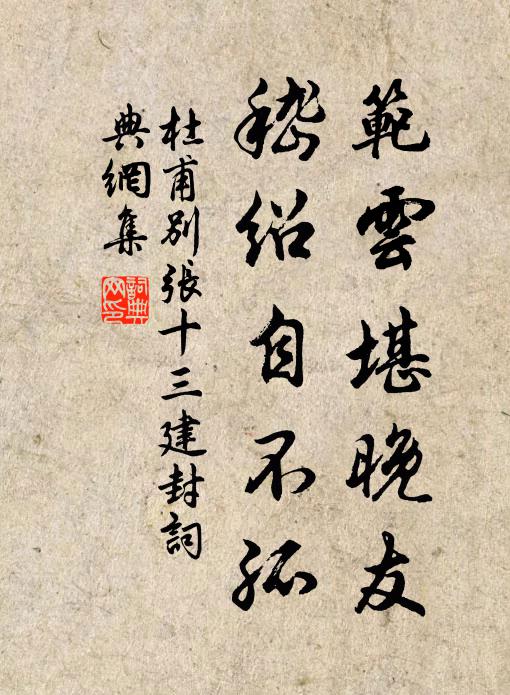 範雲堪晚友
嵇绍自不孤
杜甫別張十三建封詞
典網集
詞典网印